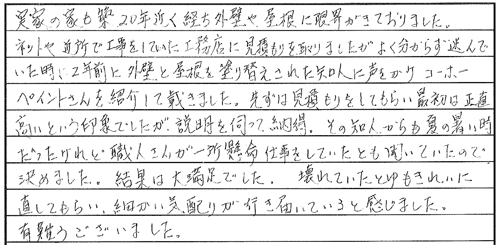 実家の家も築20年近く経ち外壁や屋根に限界がきておりました。
ネットや近所で工事をしていた工務店に見積もりを取りましたがよく分からず迷んで
いた時に2年前に外壁と屋根を塗り替えされた知人に声をかけコーホー
ペイントさんを紹介して戴きました。先ずは見積もりをしてもらい最初は正直
高いという印象でしたが説明を伺って納得。その知人からも夏の暑い時
だったけれど職人さんが一所懸命仕事をしていたとも聞いていたので
決めました。結果は大満足でした。壊れていたとゆもきれいに
直してもらい、細かい気配りが行き届いていると感じました。
有難うございました。